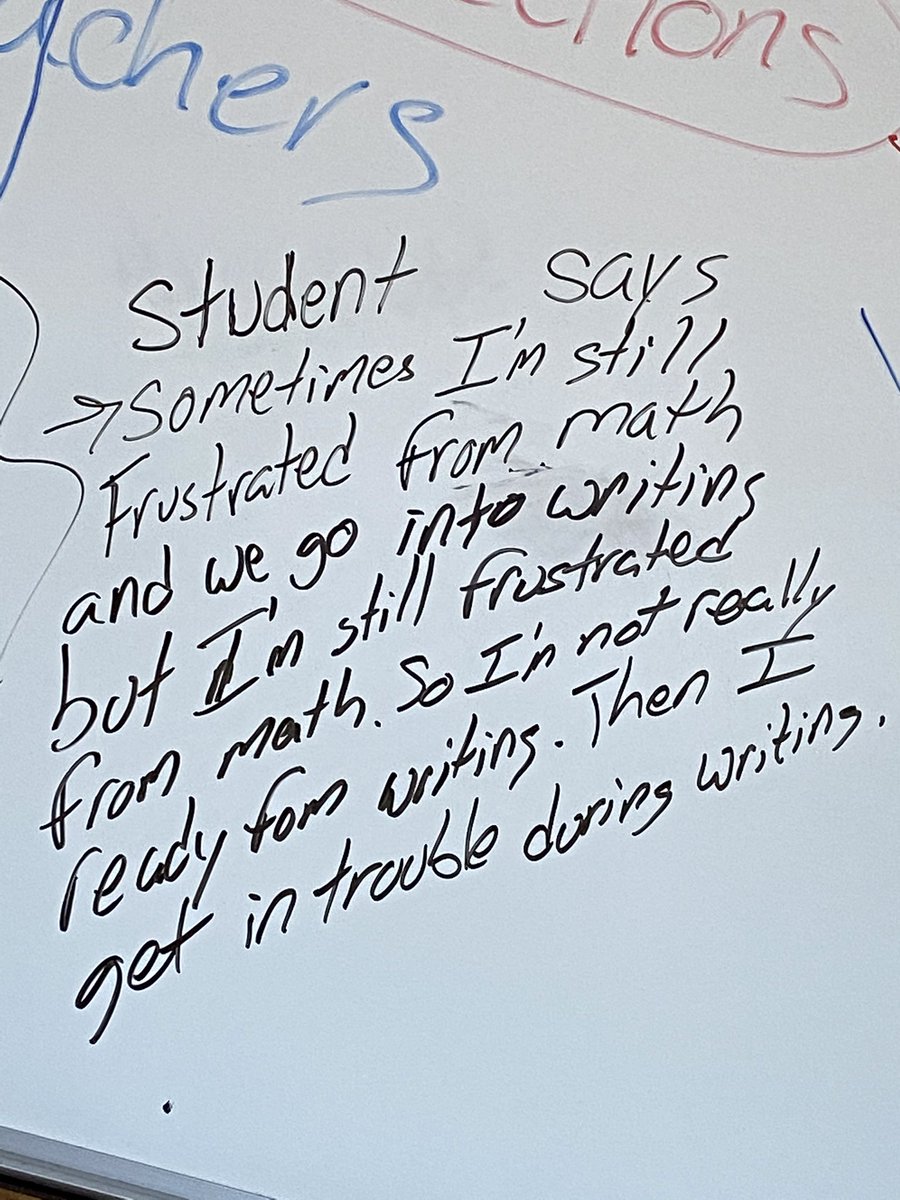 Student says
→Sometimes I'm still
Frustrated from math
and we go into writing
but I'm still frustrated
from math. So I'm not really
ready fom writing. Then I
get in trouble during writing.